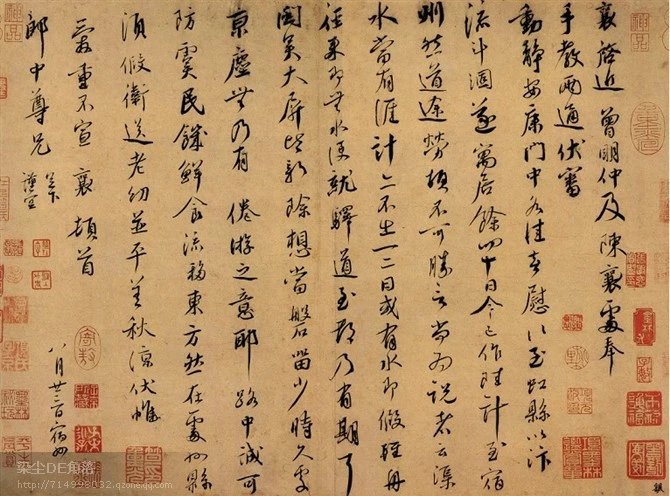 襄啓近曾明仲及陳襄處奉
手教兩通伏審
動靜安康門中各佳喜慰〻至虹縣以汴
流斗涸遂寓居餘四十日今已作陸計至宿
州然道途勞頓不可勝言尚為說者云渠
水當有涯計亦不出一二日或有水即假輕舟
徑來即無水便就驛道至都乃有期耳
閩吳大屏皆新除想當磐留少時久處
京塵乃有倦游之意耶路中誠可
防虞民饑鮮食流移東方然在處州縣
須假衛送老幼並平善秋涼伏惟
愛重不宣襄頓首
郎中尊兄 足下
謹空
八月廿三日宿州
染尘DE角落
http://714998032.qzone.qq.com/